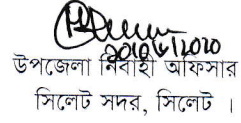 উপজেলা নির্বাহী অফিসার
সিলেট সদর, সিলেট ।